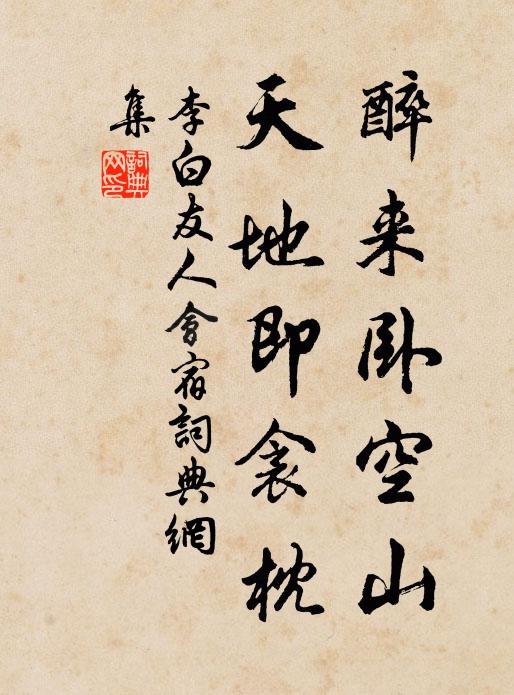 醉来卧空山
天地即衾枕
李白友人會宿詞典網
集
詞典
网印